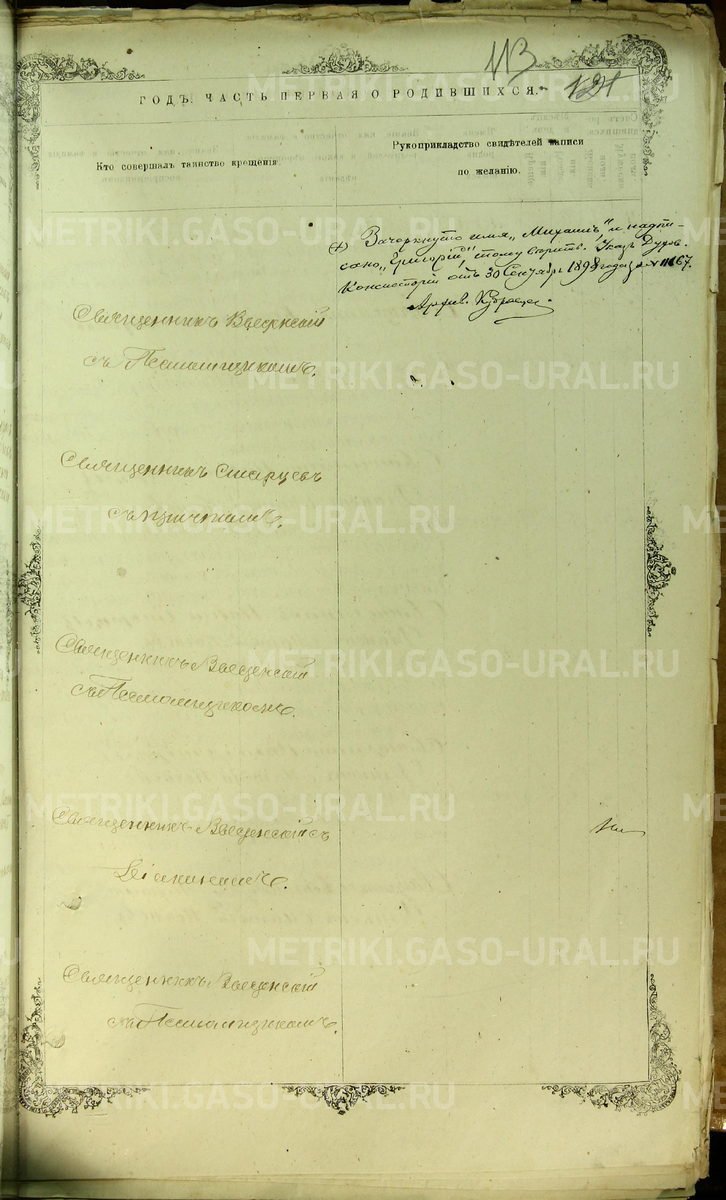 113
121
ГОДЪ. ЧАСТЬ ПЕРВАЯ О РОДИВШИХСЯ.
Кто совершалъ таинство крещенія
Рукоприкладство свидѣтелей записи
по желанію.
Зачеркнуто имя „Михаилъ" и надпи-
сано „Григорій", тому вѣрить. Указъ Духов.
Консисторіи отъ 30 Сентября 189 года за № 11167.
Архив.
Священникъ Введенскій
съ Псаломщикомъ.
Священникъ Старцевъ
съ причтомъ.
Священникъ Введенскій
съ Псаломщикомъ.
Священникъ Введенскій съ
Діакономъ.
Священникъ Введенскій
съ Псаломщикомъ.
METRIKI.GASO-URAL.RU